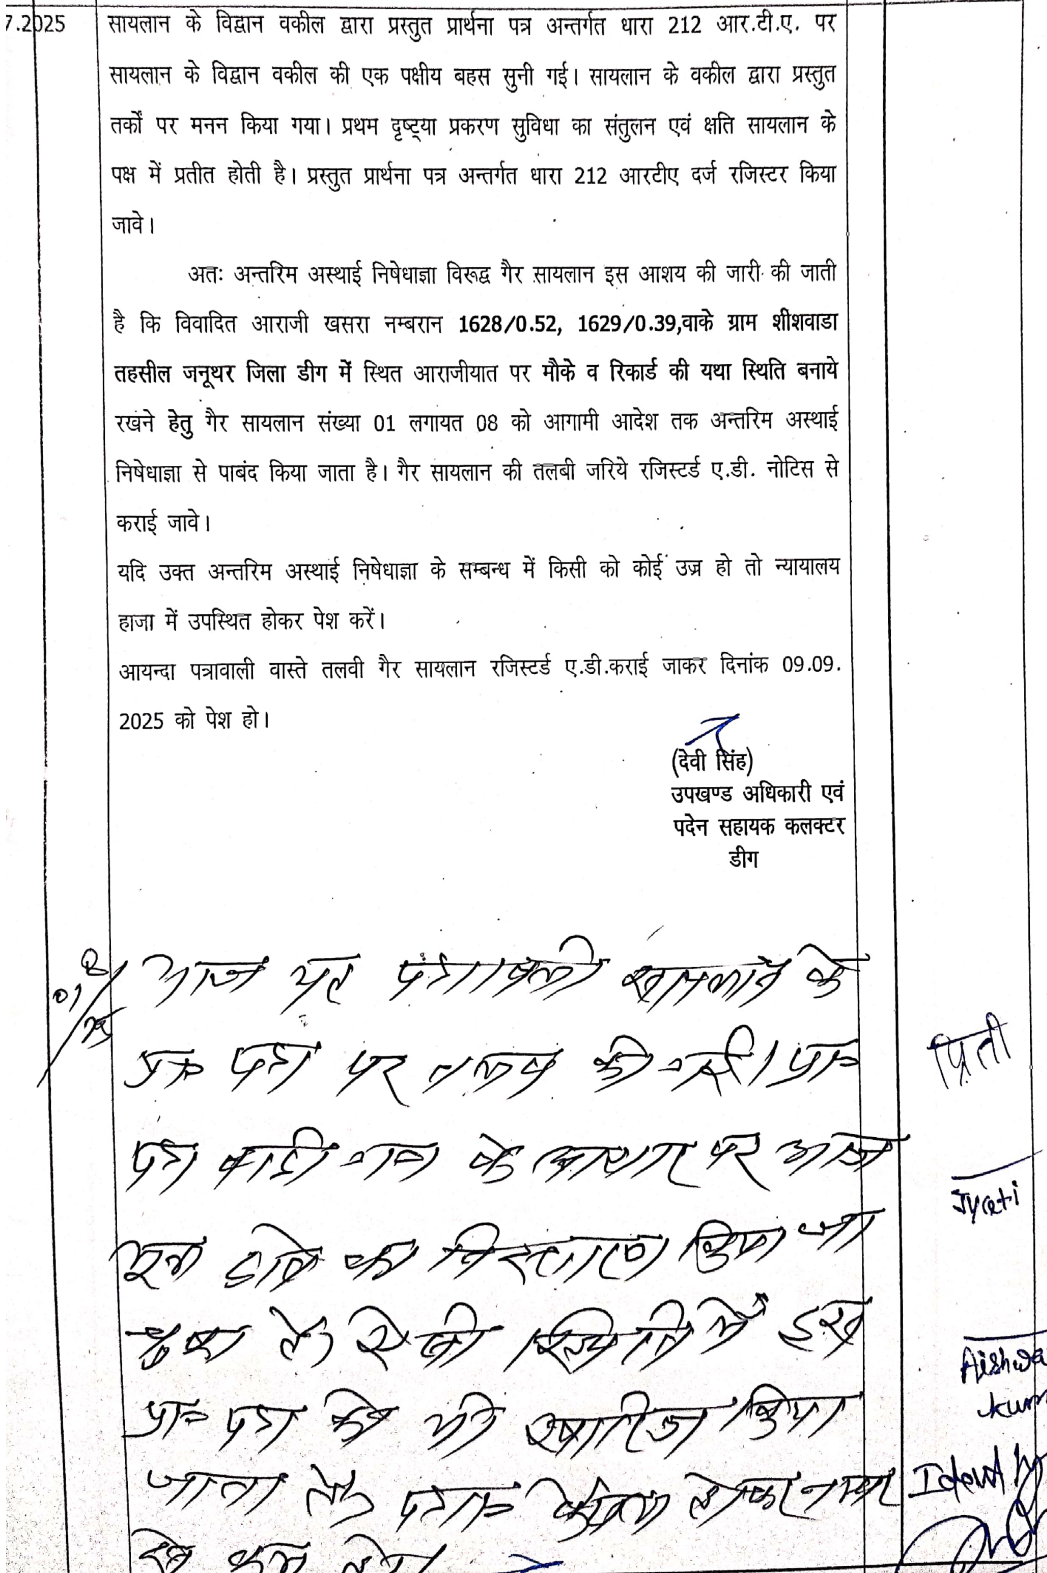 7.2025
सायलान के विद्वान वकील द्वारा प्रस्तुत प्रार्थना पत्र अन्तर्गत धारा 212 आर.टी.ए. पर
सायलान के विद्वान वकील की एक पक्षीय बहस सुनी गई। सायलान के वकील द्वारा प्रस्तुत
तर्कों पर मनन किया गया। प्रथम दृष्ट्या प्रकरण सुविधा का संतुलन एवं क्षति सायलान के
पक्ष में प्रतीत होती है। प्रस्तुत प्रार्थना पत्र अन्तर्गत धारा 212 आरटीए दर्ज रजिस्टर किया
जावे।
अतः अन्तरिम अस्थाई निषेधाज्ञा विरूद्व गैर सायलान इस आशय की जारी की जाती
है कि विवादित आराजी खसरा नम्बरान 1628/0.52, 1629/0.39,वाके ग्राम शीशवाडा
तहसील जनूथर जिला डीग में स्थित आराजीयात पर मौके व रिकार्ड की यथा स्थिति बनाये
रखने हेतु गैर सायलान संख्या 01 लगायत 08 को आगामी आदेश तक अन्तरिम अस्थाई
निषेधाज्ञा से पाबंद किया जाता है। गैर सायलान की तलबी जरिये रजिस्टर्ड ए.डी. नोटिस से
कराई जावे।
यदि उक्त अन्तरिम अस्थाई निषेधाज्ञा के सम्बन्ध में किसी को कोई उज्र हो तो न्यायालय
हाजा में उपस्थित होकर पेश करें।
आयन्दा पत्रावाली वास्ते तलवी गैर सायलान रजिस्टर्ड ए.डी.कराई जाकर दिनांक 09.09.
2025 को पेश हो।
(देवी सिंह)
उपखण्ड अधिकारी एवं
पदेन सहायक कलक्टर
डीग
आज यह पत्रावली सायलान के
प्रा० पत्र पर तलब की गई। प्रा०
पत्र वादी गण के आधार पर आज
मूल दावे का निस्तारण किया जा
चुका है ऐसी स्थिति में इस
प्रा० पत्र को भी खारिज किया
जाता है। होकर नम्बर
से कम हो।
प्रिती
Jyoti
Aishwa
kum
Ident by